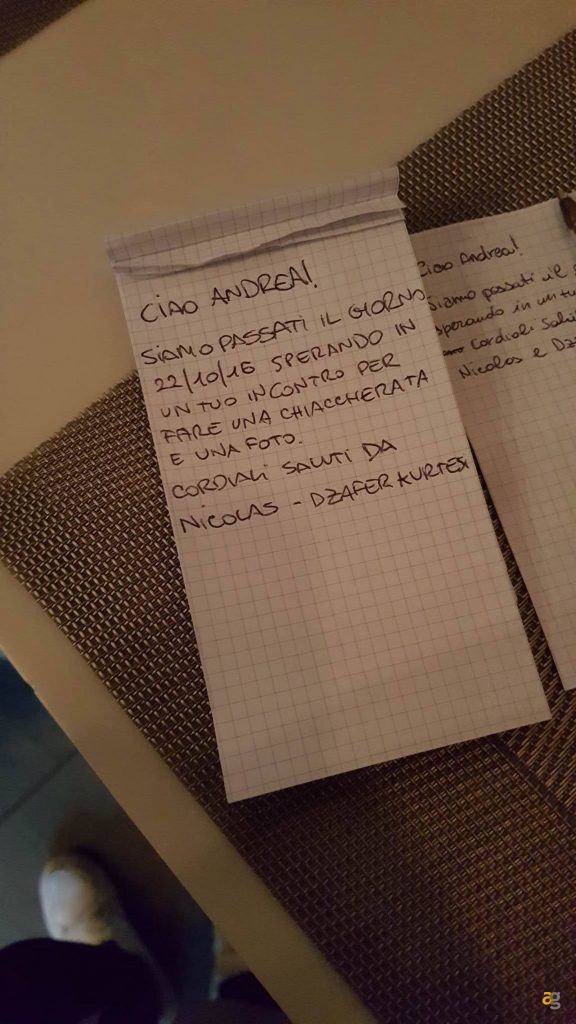 CIAO ANDREA!
SIAMO PASSATI IL GIORNO
22/10/16 SPERANDO IN
UN TUO INCONTRO PER
FARE UNA CHIACCHERATA
E UNA FOTO.
CORDIALI SALUTI DA
NICOLAS - DZAFER KURTESI
Ciao Andrea!
Siamo passati il
sperando in un tu
Cordiali Salu
Nicolas e Dz
ag